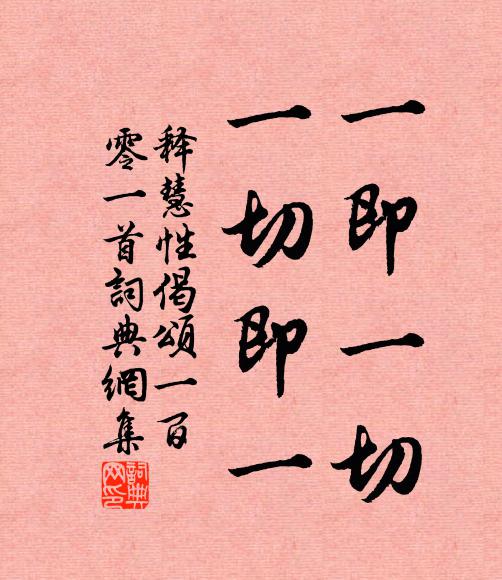 一即一切
一切即一
释慧性偈頌一百
零一首詞典網集
詞典
网印